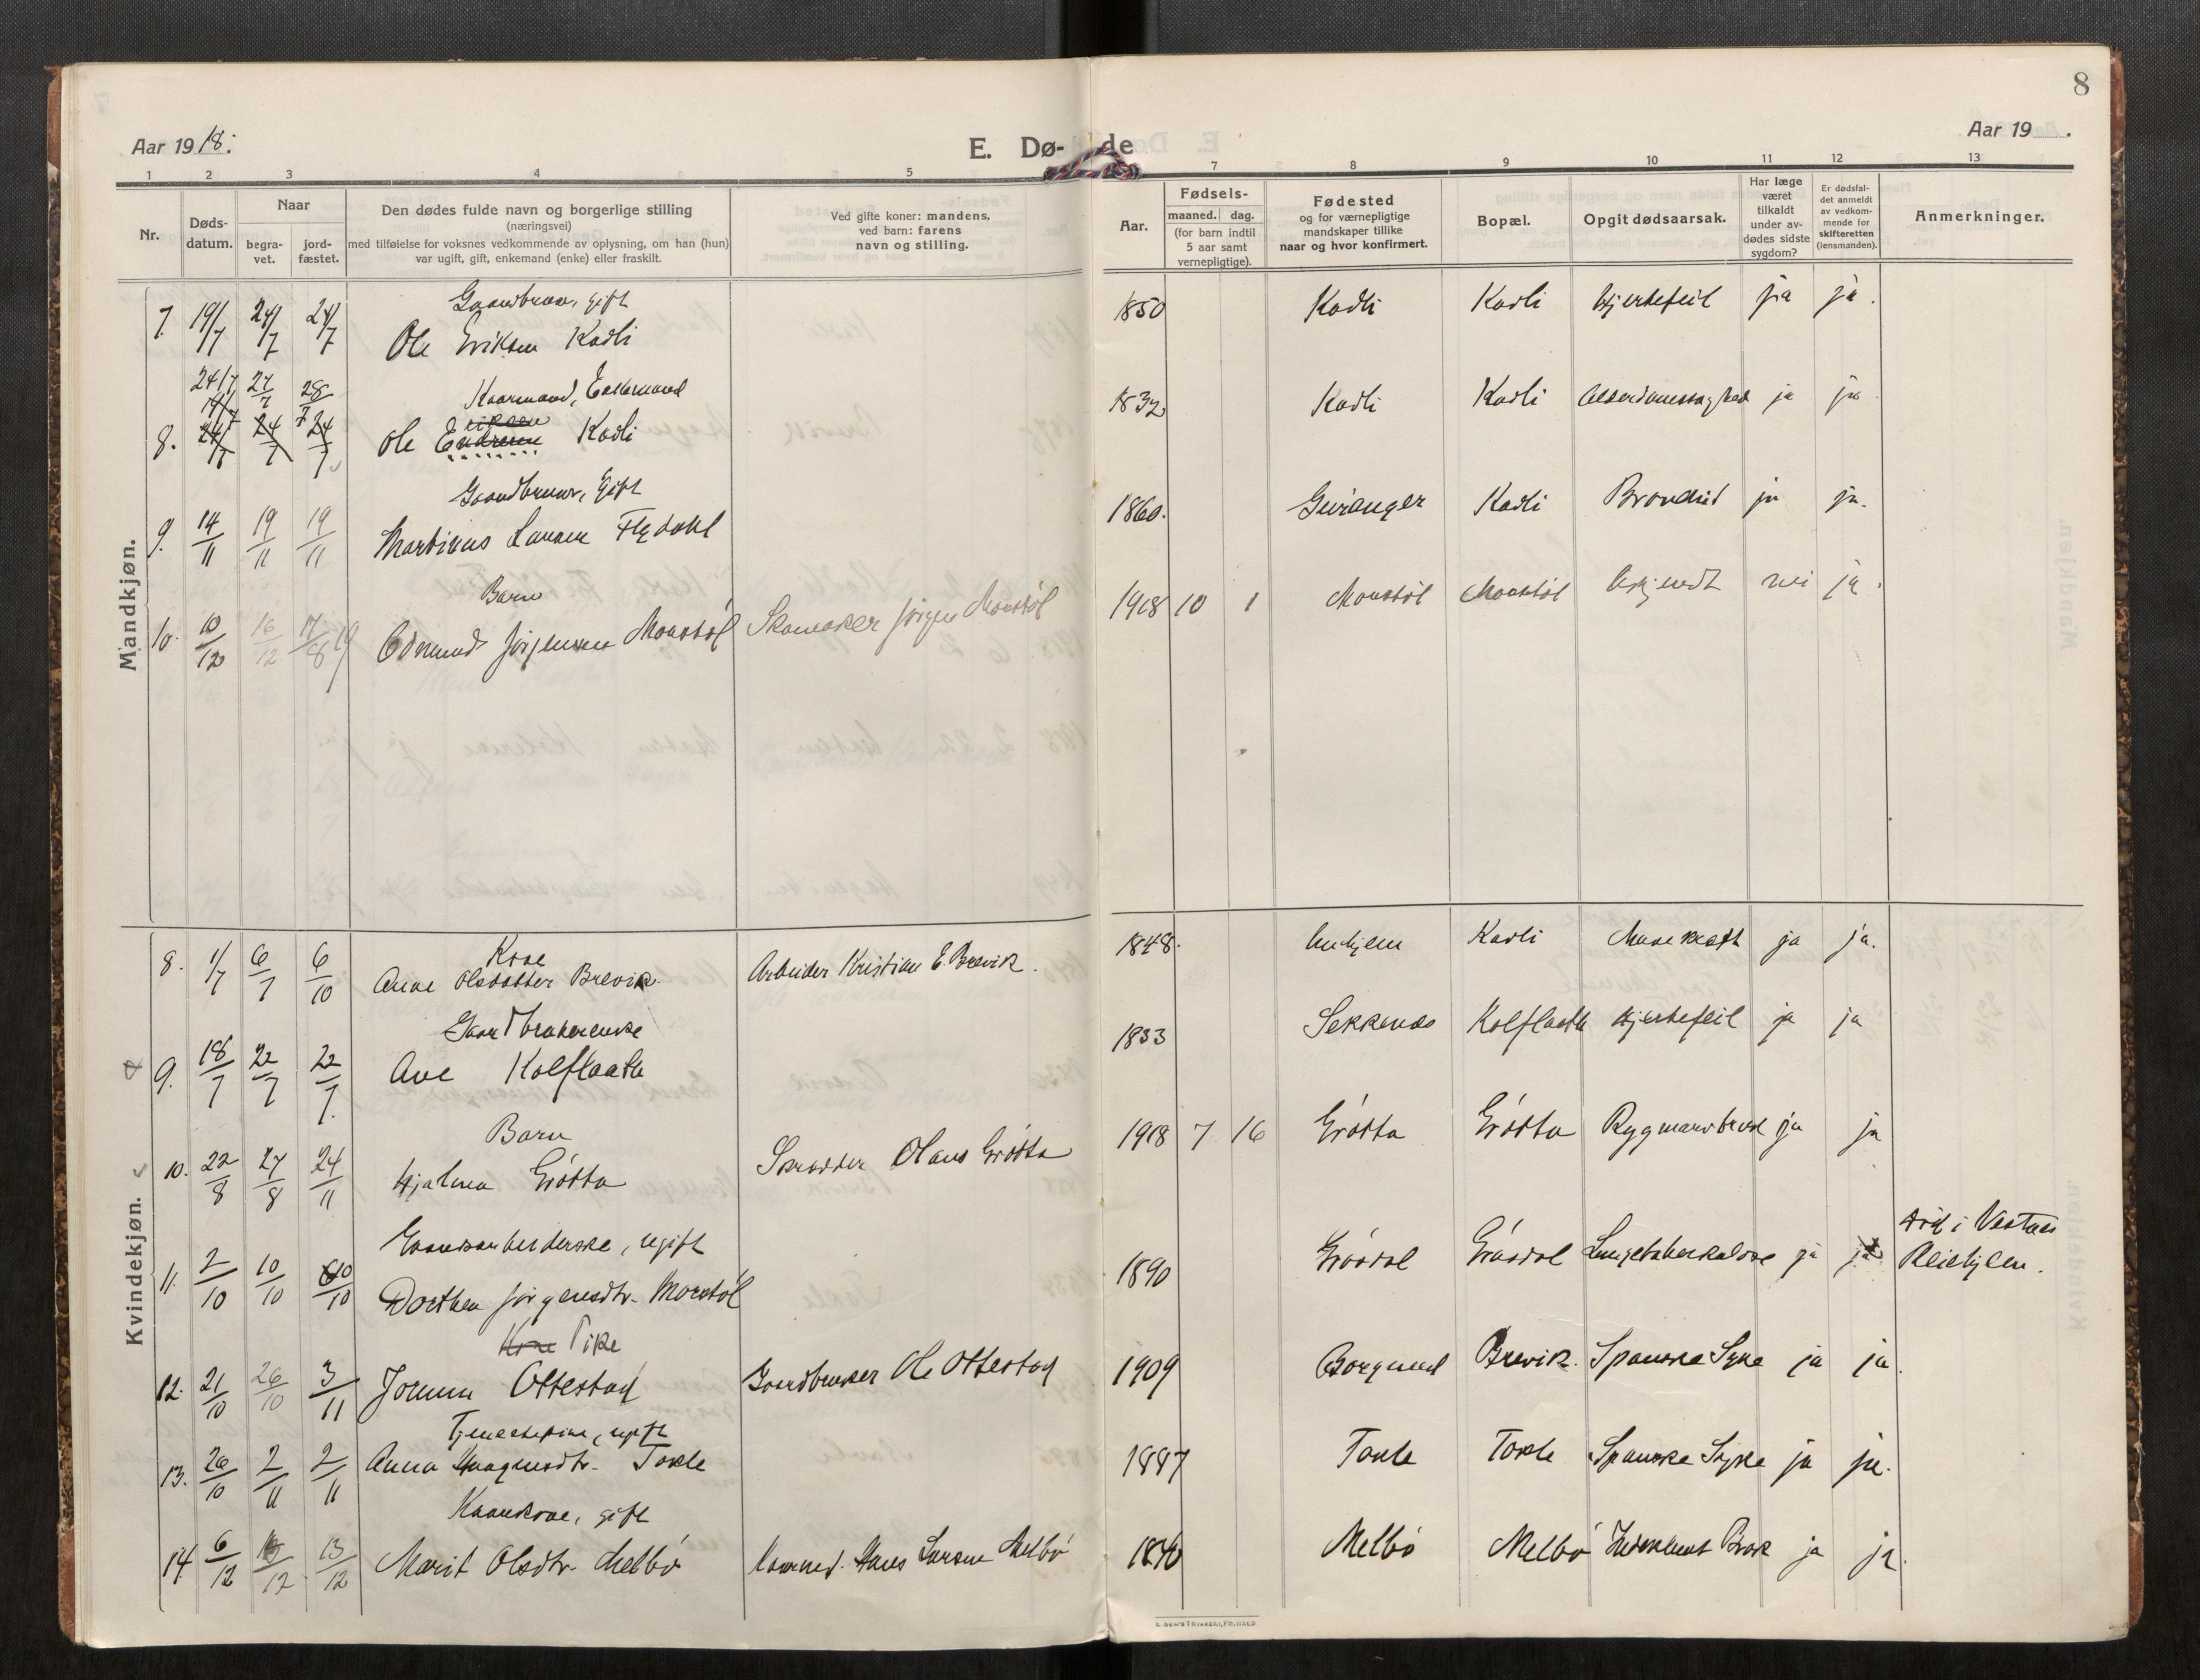 8
Aar 1918.
E. Dø-de
Aar 19 .
1 2 3 4 5 7 8 9 10 11 12 13
Nr.
Døds-
datum.
Naar
begra-
vet.
jord-
fæstet.
Den dødes fulde navn og borgerlige stilling
(næringsvei)
med tilføielse for voksnes vedkommende av oplysning, om han (hun)
var ugift, gift, enkemand (enke) eller fraskilt.
Ved gifte koner: mandens,
ved barn: farens
navn og stilling.
Aar.
Fødsels-
maaned. dag.
(for barn indtil
5 aar samt
vernepligtige).
Fødested
og for værnepligtige
mandskaper tillike
naar og hvor konfirmert.
Bopæl.
Opgit dødsaarsak.
Har læge
været
tilkaldt
under av-
dødes sidste
sygdom?
Er dødsfal-
det anmeldt
av vedkom-
mende for
skifteretten
(lensmanden).
Anmerkninger.
Mandkjøn.
Gaardbruker, gift
7. 19/7 24/7 24/7 Ole Eriksen Kadli 1850 Kadli Kadli Hjertefeil ja ja.
24/7 27/7 28/7 Kaarmand, Enkemand
8. Ole Kadli 1832 Kadli Kadli Alderdomssvaghed ja ja
Gaardbruker, Gift
9. 14/11 19/11 19/11 Martinus Larsen Flydahl 1860. Geiranger Kadli ja ja.
Barn
10. 10/12 16/12 17/8 19 Odmund Jørgensen Monstøl Skomaker Jørgen Monstøl 1918 10 1 Monstøl Monstøl Ukjendt nei ja.
Kvindekjøn.
Kone
8. 1/7 6/7 6/10 Anne Olsdotter Brevik. Arbeider Kristian E. Brevik. 1848. Kadli Mavekræft ja ja.
Gaardbrukerenke
9. 18/7 22/7 22/7. Ane Kolflaath 1833 Sekkenes Kolflaath Hjertefeil ja ja
Barn
10. 22/8 27/8 24/11 Hjalma Grøtta Skrædder Olaus Grøtta 1918 7 16 Grøtta Grøtta Rygmarvsbrok ja ja
Gaardsarbeiderske, ugift
11. 2/10 10/10 10/10 Dorthea Jørgensdtr. Monstøl 1890 Grøvdal Grøvdal Lungetuberkulose ja ja død i Vestnes
Reiehjem.
Kone Pike
12. 21/10 26/10 3/11 Jorunn Ottestad Gaardbruker Ole Ottestad 1909 Borgund Brevik. Spanske Syke ja ja.
Tjenestepike, ugift
13. 26/10 2/11 2/11 Anna Haagensdtr. Tokle 1887 Tokle Tokle Spanske Syke ja ja.
Kaarkone, gift
14 6/12 13/12 13/12 Marit Olsdtr. Melbø Kaarmd. Hans Larsen Melbø 1840 Melbø Melbø Indeklemt Brok ja ja.